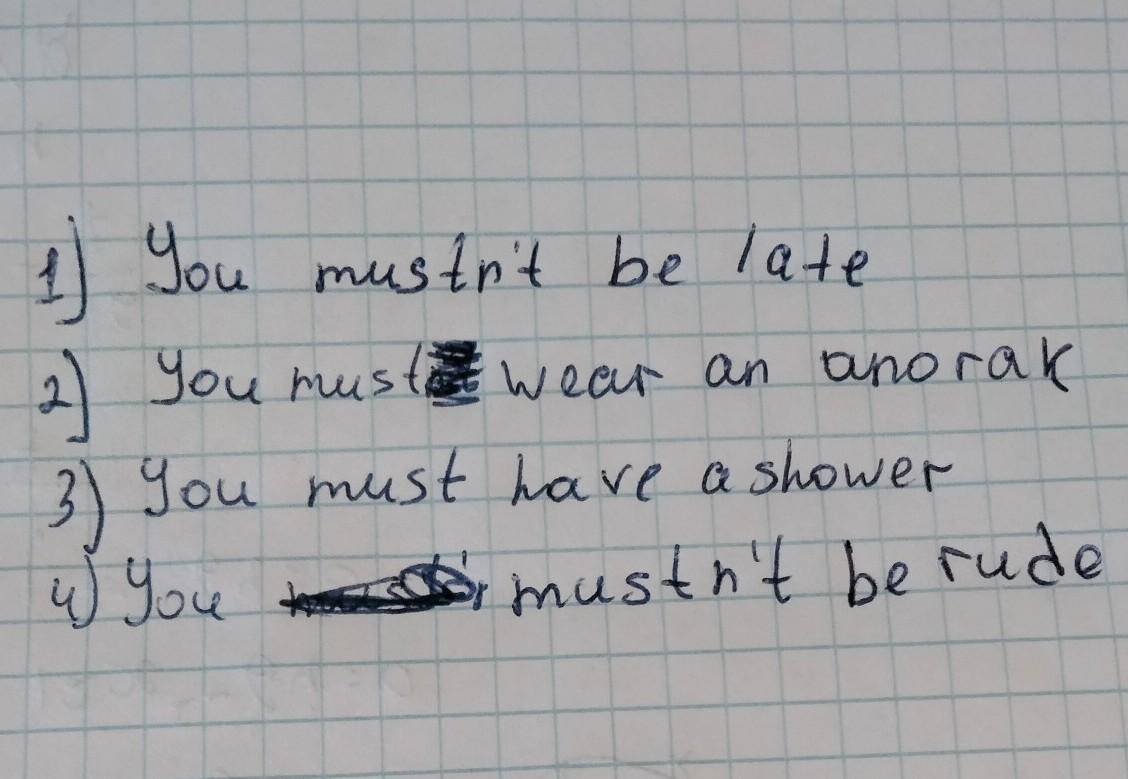 1) You mustn't be late
2) You must wear an anorak
3) You must have a shower
4) You mustn't be rude